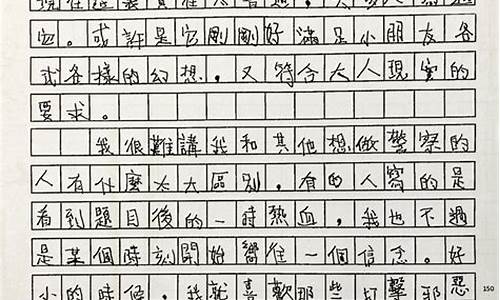 宅。或許是它剛剛好滿足小朋友各
式各樣的幻想，又符合大人現實的
要求。
我很難講我和其他想做警察的
人有什麼太大區別，有的人寫的是
看到題目後的一時熱血，我也不過
是某個時刻開始嚮往一個信念。好
小的時候，我就喜歡那些打擊邪惡
150